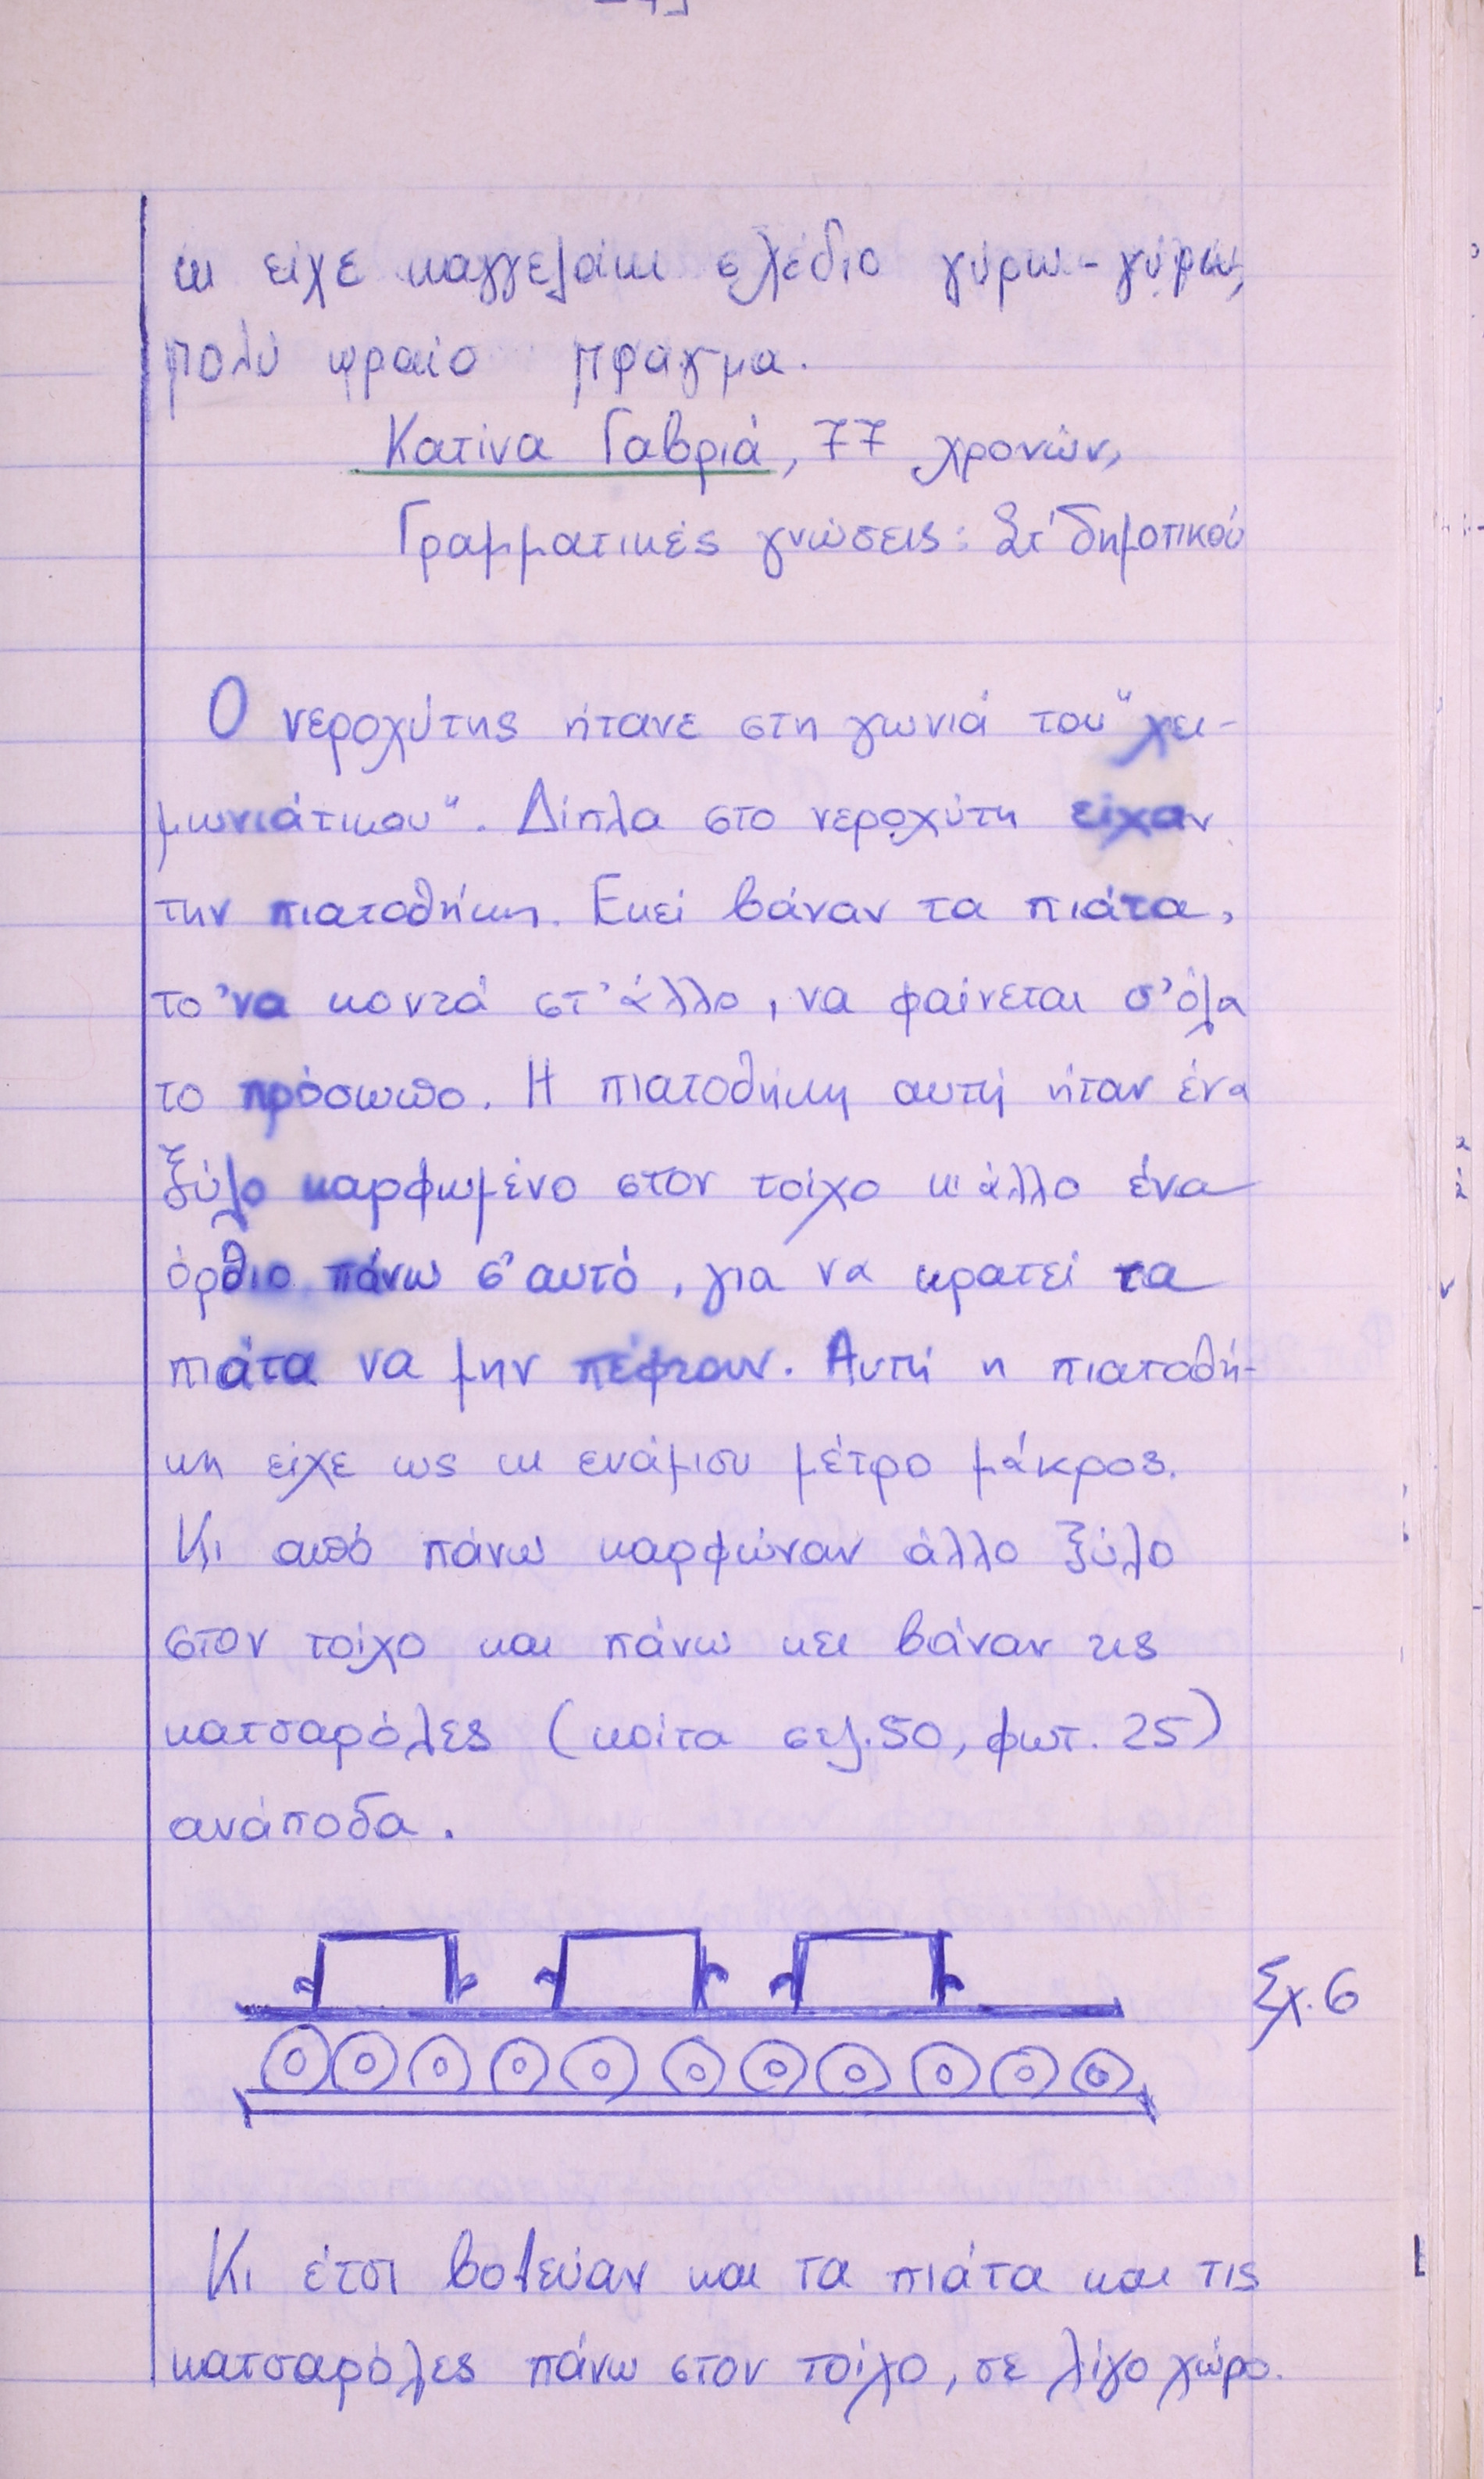 κι είχε καγγελάκι σχέδιο γύρω-γύρω,
πολύ ωραίο πράγμα.
Κατίνα Γαβριά, 77 χρονών,
Γραμματικές γνώσεις: Στ' δημοτικού
Ο νεροχύτης ήτανε στη γωνιά του "χει-
μωνιάτικου". Δίπλα στο νεροχύτη είχαν
την πιατοθήκη. Εκεί βάναν τα πιάτα,
το 'να κοντά στ' άλλο, να φαίνεται σ' όλα
το πρόσωπο. Η πιατοθήκη αυτή ήταν ένα
ξύλο καρφωμένο στον τοίχο κι άλλο ένα
όρθιο πάνω σ' αυτό, για να κρατεί τα
πιάτα να μην πέφτουν. Αυτή η πιατοθή-
κη είχε ως κι ενάμισυ μέτρο μάκρος.
Κι από πάνω καρφώναν άλλο ξύλο
στον τοίχο και πάνω κει βάναν τις
κατσαρόλες (κοίτα σελ. 50, φωτ. 25)
ανάποδα.
Σχ. 6
Κι έτσι βολεύαν και τα πιάτα και τις
κατσαρόλες πάνω στον τοίχο, σε λίγο χώρο.